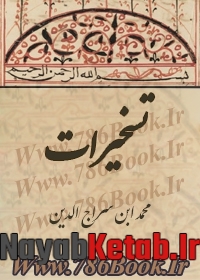 بسم الله الرحمن الرحیم
www.786Book.Ir
تسخیرات
www.786Book.Ir
محمد ابن سراج الدین
NayabKetab.Ir
www.786Book.Ir